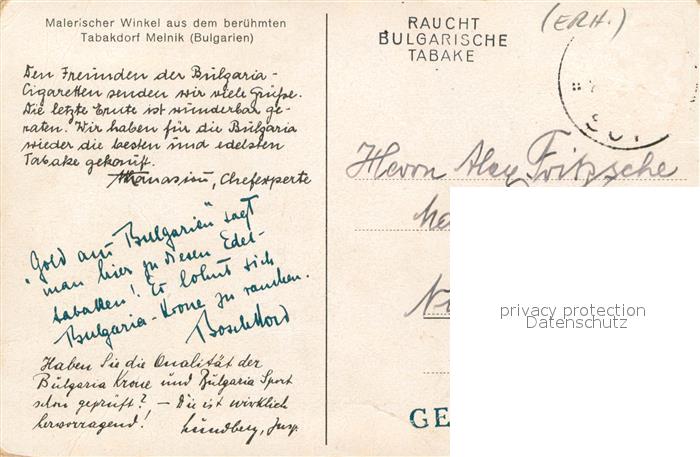 Malerischer Winkel aus dem berühmten
Tabakdorf Melnik (Bulgarien)
Den Freunden der Bulgaria-
Cigaretten senden wir viele Grüße.
Die letzte Ernte ist wunderbar ge-
raten. Wir haben für die Bulgaria
wieder die besten und edelsten
Tabake gekauft.
Athanasiou, Chefexperte
"Gold aus Bulgarien" sagt
man hier zu diesen Edel-
tabaken! Es lohnt sich
Bulgaria-Krone zu rauchen.
Haben Sie die Qualität der
Bulgaria Krone und Bulgaria Sport
schon geprüft? – Die ist wirklich
hervorragend!
Lundberg, Insp.
RAUCHT
BULGARISCHE
TABAKE
(ERH.)
Herrn Alex Fritzsche
GE
privacy protection
Datenschutz